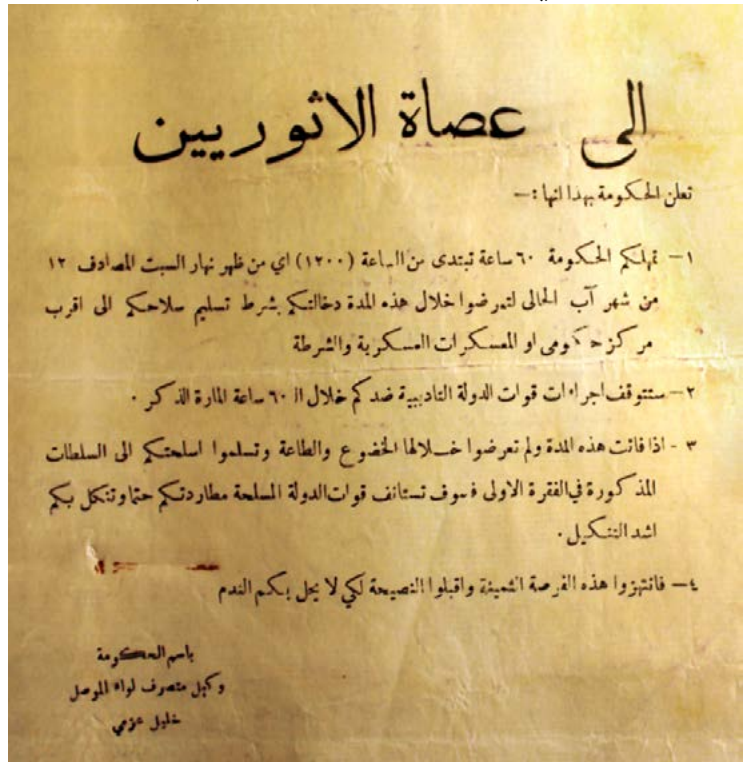 الى عصاة الاثوريين
تعلن الحكومة بهذا انها :—
١— تمهلكم الحكومة ٦٠ ساعة تبتدى من الساعة (١٢٠٠) اي من ظهر نهار السبت المصادف ١٢
من شهر آب الحالى لتعرضوا خلال هذه المدة دخالتكم بشرط تسليم سلاحكم الى اقرب
مركز حكومى او المعسكرات العسكرية والشرطة
٢— ستتوقف اجراءات قوات الدولة التاديبية ضدكم خلال الـ ٦٠ ساعة المارة الذكر .
٣ - اذا فاتت هذه المدة ولم تعرضوا خلالها الخضوع والطاعة وتسلموا اسلحتكم الى السلطات
المذكورة في الفقرة الاولى فسوف تستانف قوات الدولة المسلحة مطاردتكم حتما وتنكل بكم
اشد التنكيل .
٤— فانتهزوا هذه الفرصة الثمينة واقبلوا النصيحة لكي لا يحل بكم الندم
باسم الحكومة
وكيل متصرف لواء الموصل
خليل عزمي